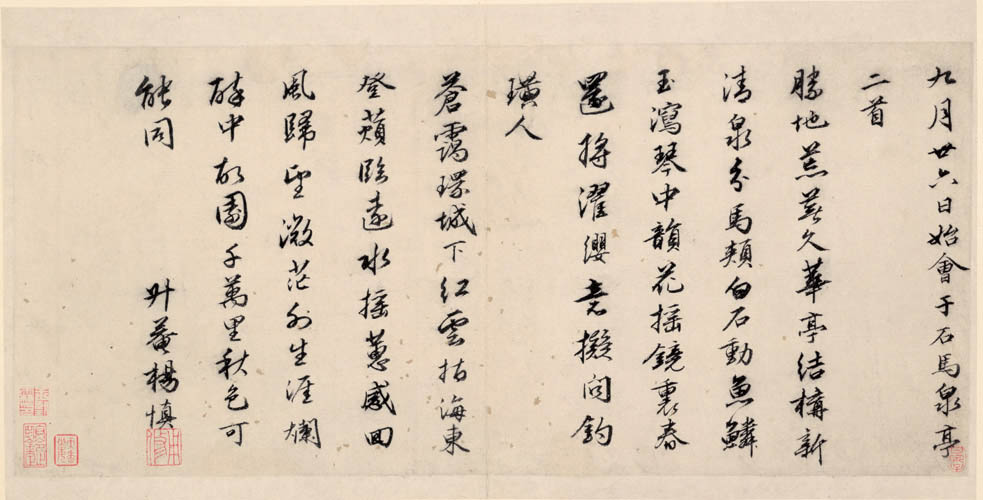 九月廿六日始會于石馬泉亭
二首
勝地荒蕪久華亭結構新
清泉分馬頰白石動魚鱗
玉瀉琴中韻花搖鏡裏春
還將濯纓意擬問釣
璜人
蒼靄環城下紅雲拍海東
登蘋臨遠水搖蕙感回
風歸望微茫外生涯爛
醉中故園千萬里秋色可
能同 升菴楊慎